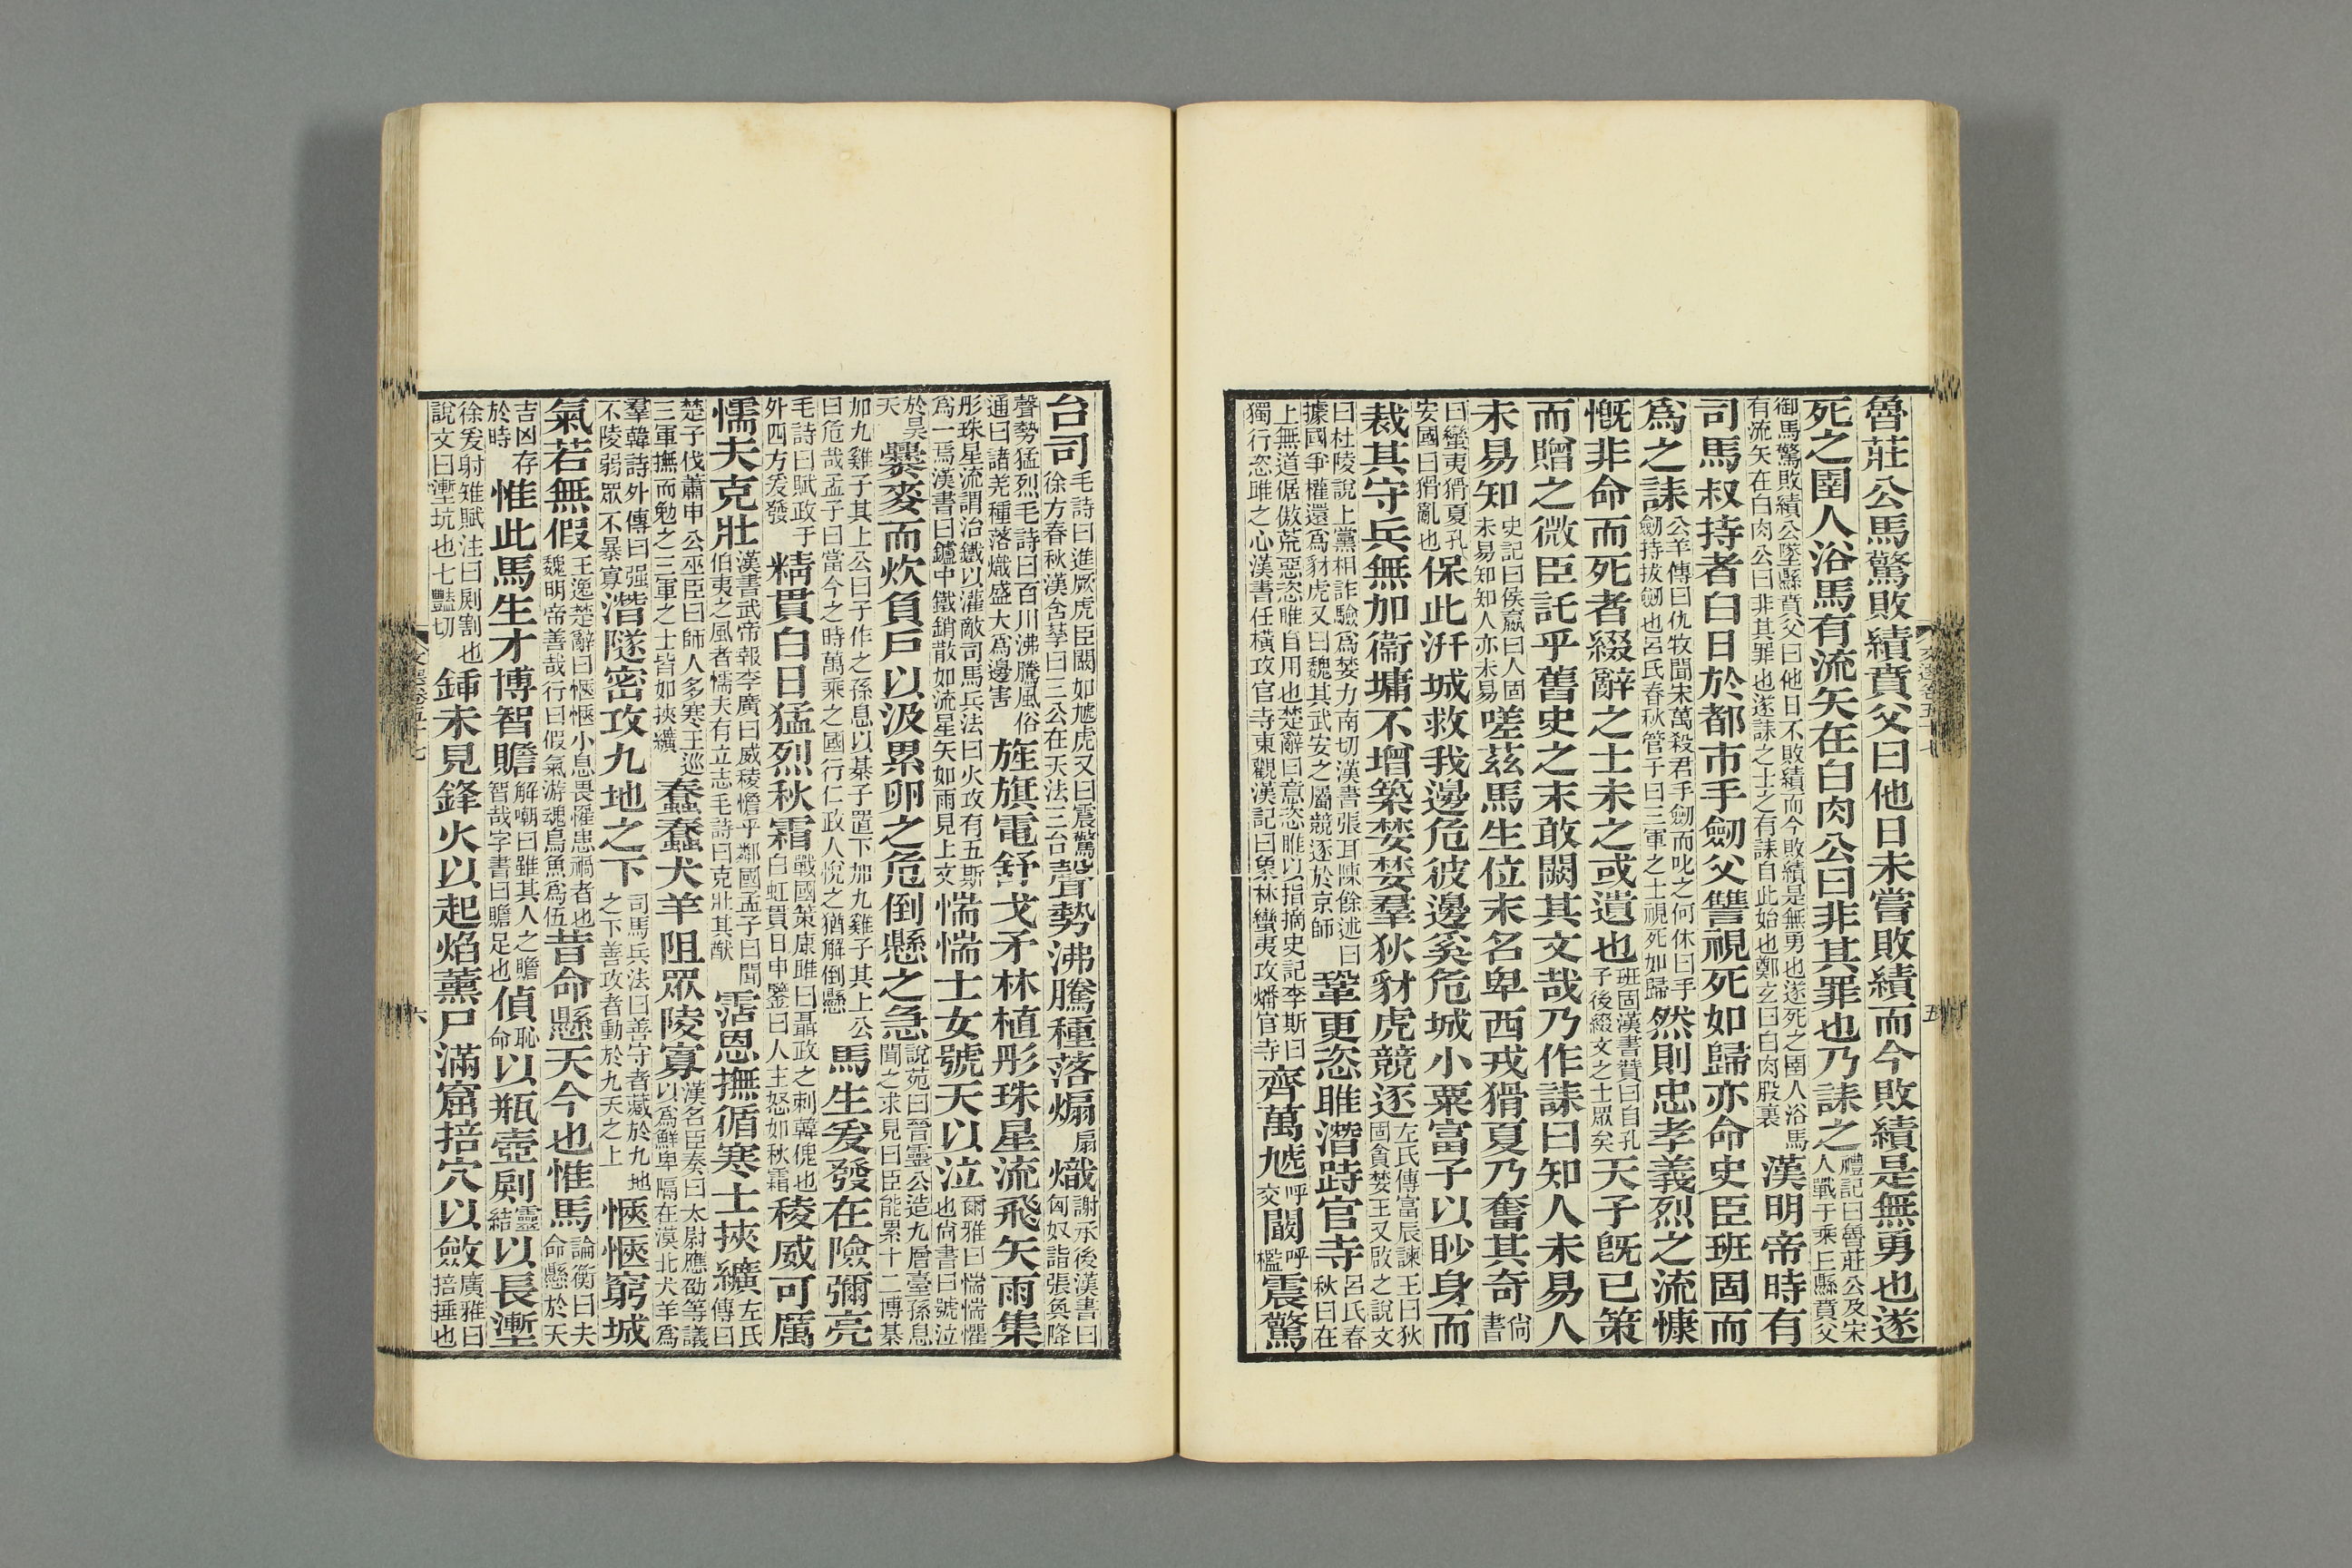 魯莊公馬驚敗績賁父曰他日未嘗敗績而今敗績是無勇也遂
死之圉人浴馬有流矢在白肉公曰非其罪也乃誄之禮記曰魯莊公及宋人戰于乘丘縣賁父
御馬驚敗績公墜縣賁父曰他日不敗績而今敗績是無勇也遂死之圉人浴馬有流矢在白肉公曰非其罪也遂誄之士之有誄自此始也鄭玄曰白肉股裏漢明帝時有
司馬叔持者白日於都市手劒父讐視死如歸亦命史臣班固而
為之誄公羊傳曰仇牧聞宋萬殺君手劒而叱之何休曰手劒持拔劒也呂氏春秋管子曰三軍之士視死如歸然則忠孝義烈之流慷
慨非命而死者綴辭之士未之或遺也班固漢書贊曰自孔子後綴文之士眾矣天子旣已策
而贈之微臣託乎舊史之末敢闕其文哉乃作誄曰知人未易人
未易知史記曰侯嬴曰人固未易知知人亦未易嗟茲馬生位末名卑西戎猾夏乃奮其奇尚書
曰蠻夷猾夏孔安國曰猾亂也保此汧城救我邊危彼邊奚危城小粟富子以眇身而
裁其守兵無加衞墉不增築婪婪羣狄豺虎競逐左氏傳富辰諫王曰狄固貪婪王又啟之說文
曰杜陵說上黨相詐驗為婪力南切漢書張耳陳餘述曰據國爭權還為豺虎又曰魏其武安之屬競逐於京師鞏更恣睢潛跱官寺呂氏春秋曰在
上無道倨傲荒惡恣睢自用也楚辭曰意恣睢以指摘史記李斯曰獨行恣睢之心漢書任橫攻官寺東觀漢記曰象林蠻夷攻燔官寺齊萬虓呼交闞呼檻震驚
台司毛詩曰進厥虎臣闞如虓虎又曰震驚徐方春秋漢含孳曰三公在天法三台聲勢沸騰種落煽扇熾謝承後漢書曰匈奴詣張奐降
聲勢猛烈毛詩曰百川沸騰風俗通曰諸羌種落熾盛大為邊害旌旗電舒戈矛林植彤珠星流飛矢雨集
彤珠星流謂冶鐵以灌敵司馬兵法曰火攻有五斯為一焉漢書曰鑪中鐵銷散如流星矢如雨見上文惴惴士女號天以泣爾雅曰惴惴懼也尚書曰號泣
於旻天爨麥而炊負戶以汲累卵之危倒懸之急說苑曰晉靈公造九層臺孫息聞之求見曰臣能累十二博棊
加九雞子其上公曰子作之孫息以棊子置下加九雞子其上公曰危哉孟子曰當今之時萬乘之國行仁政人悅之猶解倒懸馬生爰發在險彌亮
毛詩曰賦政于外四方爰發精貫白日猛烈秋霜戰國策康雎曰聶政之刺韓傀也白虹貫日申鑒曰人主怒如秋霜稜威可厲
懦夫克壯漢書武帝報李廣曰威稜憺乎鄰國孟子曰聞伯夷之風者懦夫有立志毛詩曰克壯其猷霑恩撫循寒士挾纊左氏傳曰
楚子伐蕭申公巫臣曰師人多寒王巡三軍撫而勉之三軍之士皆如挾纊蠢蠢犬羊阻眾陵寡漢名臣奏曰太尉應劭等議以為鮮卑隔在漠北犬羊為
羣韓詩外傳曰强不陵弱眾不暴寡潛隧密攻九地之下司馬兵法曰善守者藏於九地之下善攻者動於九天之上愜愜窮城
氣若無假王逸楚辭曰愜愜小息畏懼患禍者也魏明帝善哉行曰假氣游魂鳥魚為伍昔命懸天今也惟馬論衡曰夫命懸於天
吉凶存於時惟此馬生才博智贍解嘲曰雖其人之贍智哉字書曰贍足也偵恥命以瓶壺㓸靈結以長壍
徐爰射雉賦注曰㓸割也說文曰壍坑也七豔切鍤未見鋒火以起焰薰尸滿窟掊穴以斂廣雅曰掊捶也